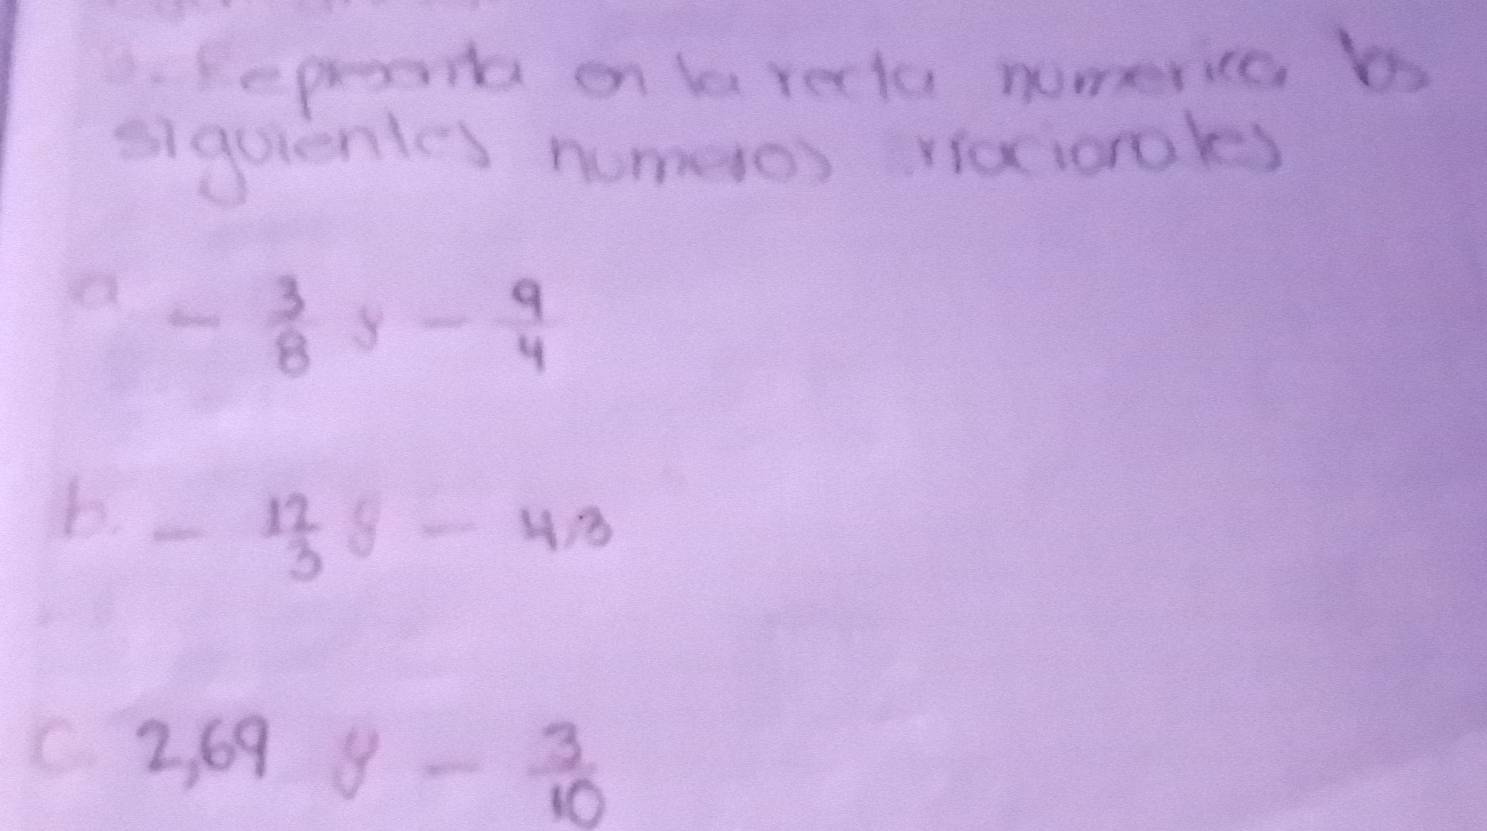 Representa en la recta numerica los
siguientes numeros rracionales
a. - 3/8 y - 9/4
b. - 12/3 y - 4,3
c. 2,69 y - 3/10